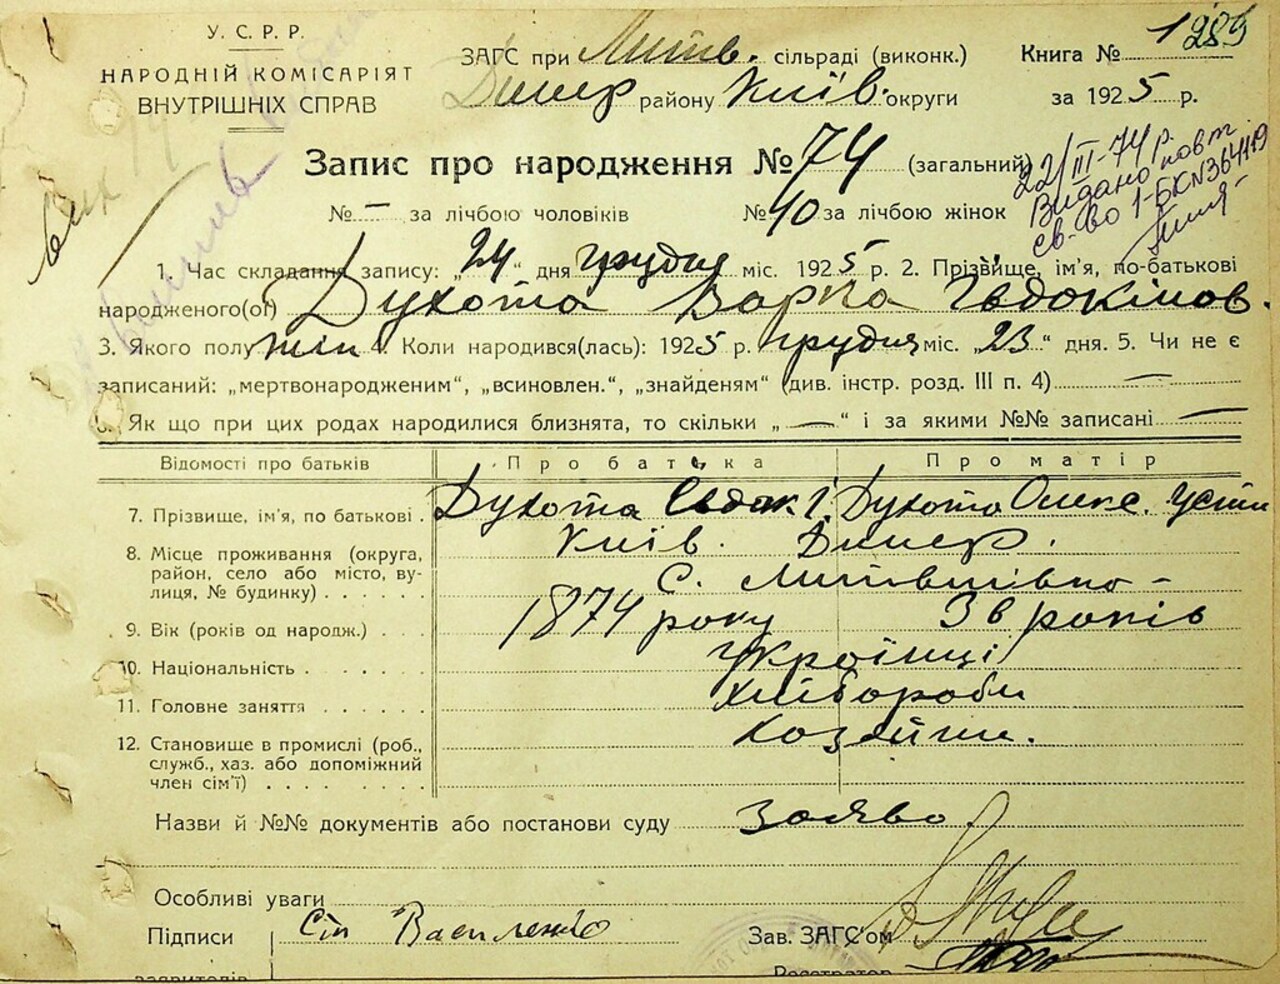 У. С. Р. Р.
НАРОДНІЙ КОМІСАРІЯТ
ВНУТРІШНІХ СПРАВ
ЗАГС при Литв. сільраді (виконк.)
Димер району Київ. округи
Книга №
за 1925 р.
Запис про народження № 74 (загальний)
№ — за лічбою чоловіків № 40 за лічбою жінок
22/III-74 р.
Видано повт
св-во 1-БК №364119
1. Час складання запису: „24“ дня грудня міс. 1925 р. 2. Прізвище, ім'я, по-батькові
народженого(ої) Духота Варка Євдокімов.
3. Якого полу жін. Коли народився(лась): 1925 р. грудня міс. „23“ дня. 5. Чи не є
записаний: „мертвонародженим“, „всиновлен.“, „знайденям“ (див. інстр. розд. III п. 4) —
Як що при цих родах народилися близнята, то скільки „—“ і за якими №№ записані —
Відомості про батьків Про батька Про матір
7. Прізвище, ім'я, по батькові . Духота Євдок. Духота Олекс. Усти
8. Місце проживання (округа, район, село або місто, ву-лиця, № будинку) . . . . . . Київ. Димер.
С. Литвинівка -
9. Вік (років од народж.) . . . 1874 року 36 років
10. Національність . . . . . . Українці
11. Головне заняття . . . . . . хлібороби
12. Становище в промислі (роб., служб., хаз. або допоміжний член сім'ї) . . . . . . . . хозяїни.
Назви й №№ документів або постанови суду заява
Особливі уваги
Підписи Василенко
заявителів
Зав. ЗАГС'ом
Реєстратор